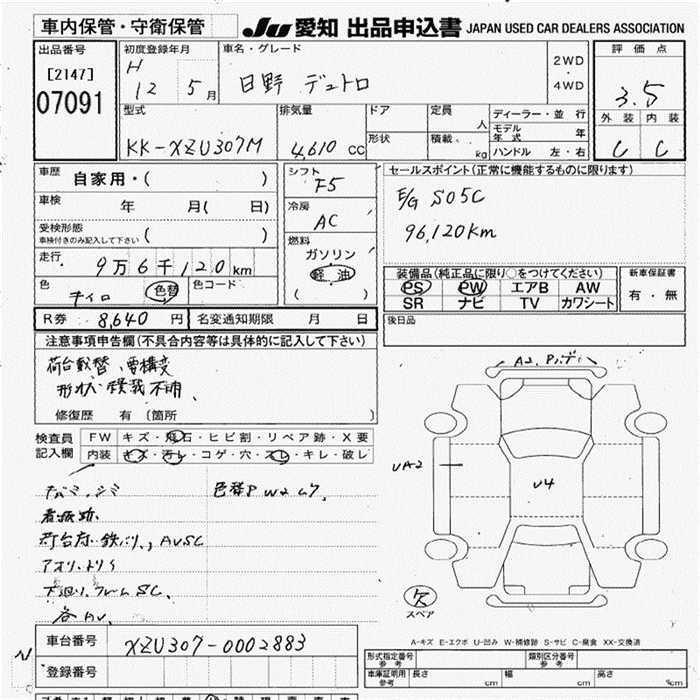 車内保管・守衛保管
JU 愛知 出品申込書 JAPAN USED CAR DEALERS ASSOCIATION
出品番号
[2147]
07091
初度登録年月
H 12 5月
車名・グレード
日野 デュトロ
2WD
・
4WD
評価点
3.5
外装 内装
C C
型式
KK-XZU307M
排気量
4,610 cc
ドア
形状
定員 人
積載 kg
ディーラー・並行
モデル年式 年
ハンドル 左・右
車歴
自家用・( )
車検 年 月( 日)
受検形態
車検付きのみ記入して下さい ( )
走行 9万6千120km
色
色替
色コード
シフト
F5
冷房
AC
燃料
ガソリン
軽油
( )
セールスポイント(正常に機能するものに限ります)
E/G S05C
96,120km
装備品(純正品に限り○をつけてください)
PS PW エアB AW
SR ナビ TV カワシート
新車保証書
有・無
後日品
R券 8,640 円 名変通知期限 月 日
注意事項申告欄(不具合内容等は具体的に記入して下さい)
荷台載替、要構変
形状、積載不明
修復歴 有 〔箇所 〕
検査員記入欄
FW キズ・飛石・ヒビ割・リペア跡・X要
内装 キズ・汚レ・コゲ・穴・スレ・キレ・破レ
色替P W2
下廻り、フレームSC、
A2
UA2
U4
欠
スペア
A-キズ E-エクボ U-凹み W-補修跡 S-サビ C-腐食 XX-交換済
車台番号 XZU307-0002883
登録番号
形式指定番号 参考
類別区分番号 参考
車庫証明用 参考 長さ cm 幅 cm 高さ cm